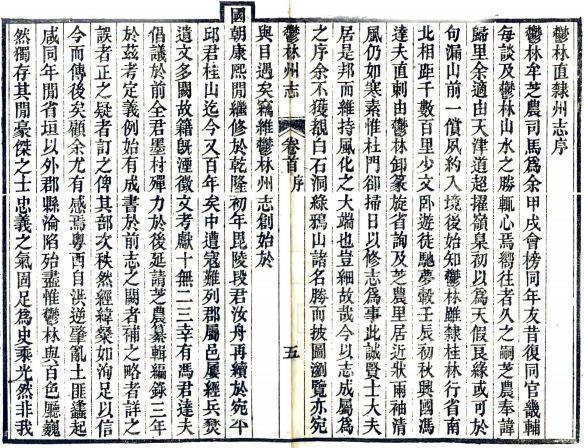 鬱林直隸州志序
鬱林牟芝農司馬爲余甲戌會榜同年友昔復同官畿輔
每談及鬱林山水之勝輒心焉嚮往者久之嗣芝農奉諱
歸里余適由天津道超擢嶺臬初以爲天假良緣或可於
句漏山前一償夙約入境後始知鬱林雖隸桂林行省南
北相距千數百里少文臥遊徒馳夢轂壬辰初秋興國馮
達夫直刺由鬱林卸篆旋省詢及芝農里居近狀兩袖清
風仍如寒素惟杜門卻掃日以修志爲事此誠賢士大夫
居是邦而維持風化之大端也豈細故哉今以志成屬爲
之序余不獲覩白石洞綠鴉山諸名勝而披圖瀏覽亦宛
鬱林州志
卷首 序
五
與目遇矣竊維鬱林州志創始於
國朝康熙閒繼修於乾隆初年毘陵段君汝舟再續於宛平
邱君桂山迄今又百年矣中遭寇難列郡屬邑屢經兵燹
遺文多闕故籍旣湮徵文考獻十無二三幸有馮君達夫
倡議於前全君墨村殫力於後延請芝農纂輯編錄三年
於茲考定義例始有成書於前志之闕者補之略者詳之
誤者正之疑者訂之俾其部次秩然經緯燦如洵足以信
今而傳後矣顧余尤有感焉粵西自洪逆肇亂土匪蠭起
咸同年閒省垣以外郡縣淪陷殆盡惟鬱林與百色廳巍
然獨存其閒豪傑之士忠義之氣固足爲史乘光然非我